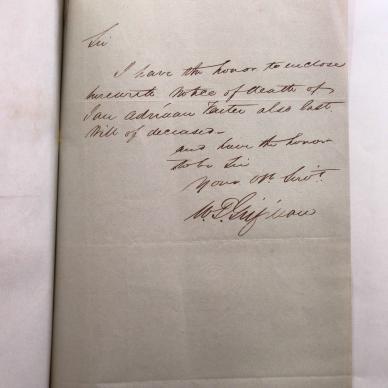 Sir
I have the honor to enclose
herewith Notice of Death of
Jan Adriaan Faster also last
Will of deceased –
and have the honor
to be Sir
Your Obt. Servt.